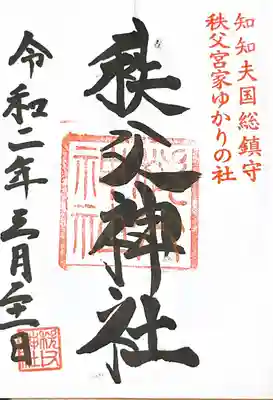 知知夫国総鎮守
秩父宮家ゆかりの社
秩父神社
令和二年三月二十一日